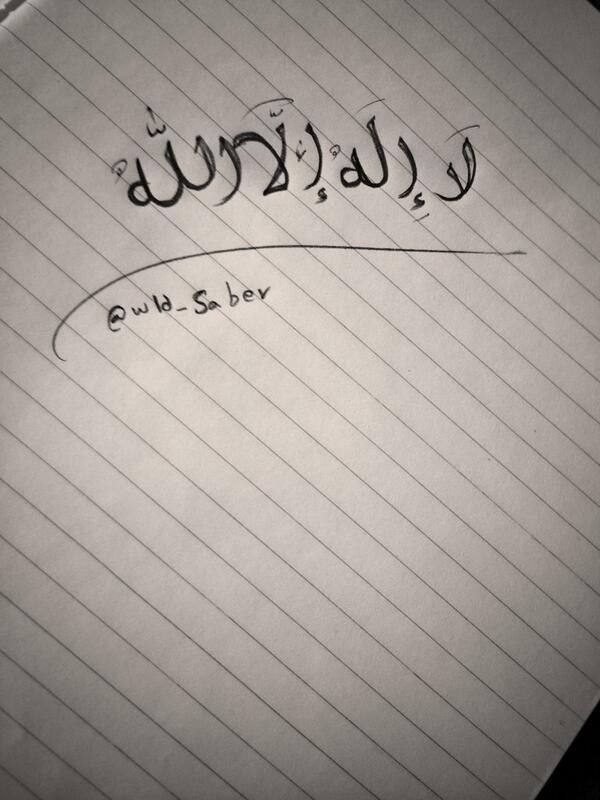 لَا إِلهَ إِلَّا اللَّهُ
@wld_Saber